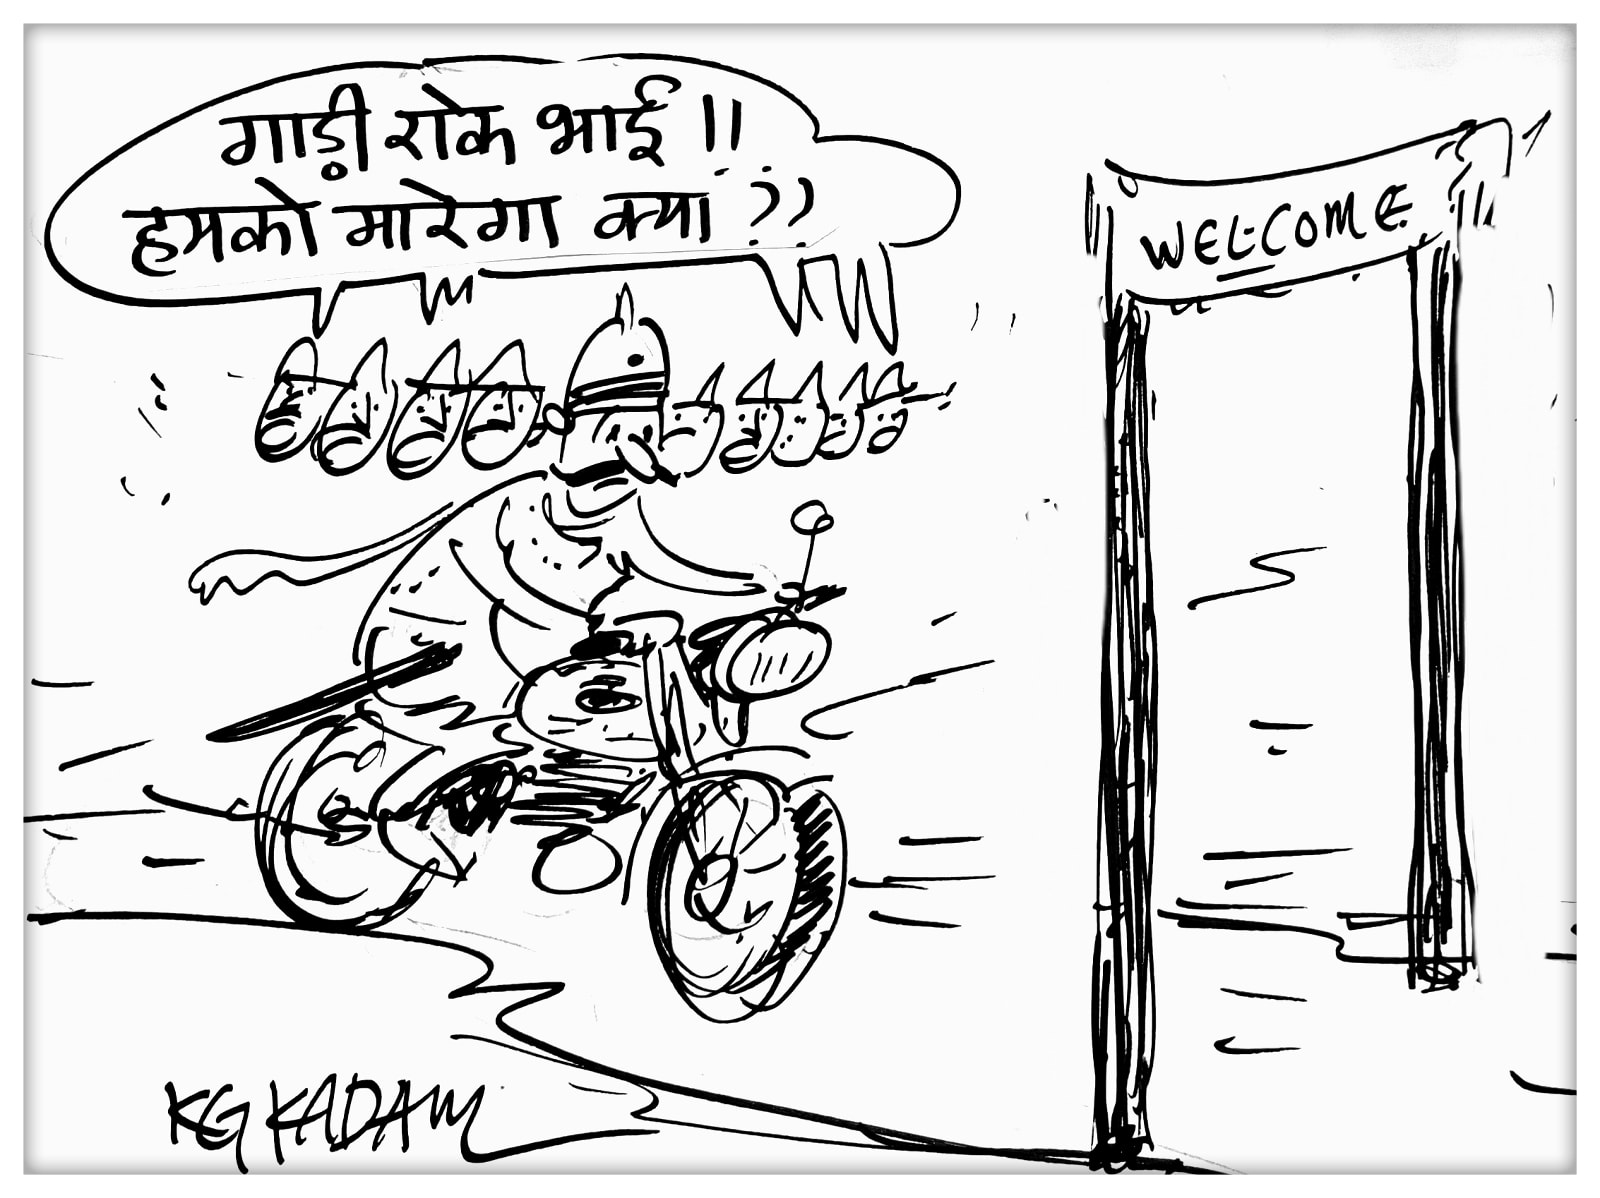 गाड़ी रोक भाई !!
हमको मारेगा क्या ??
WELCOME
KG KADAM